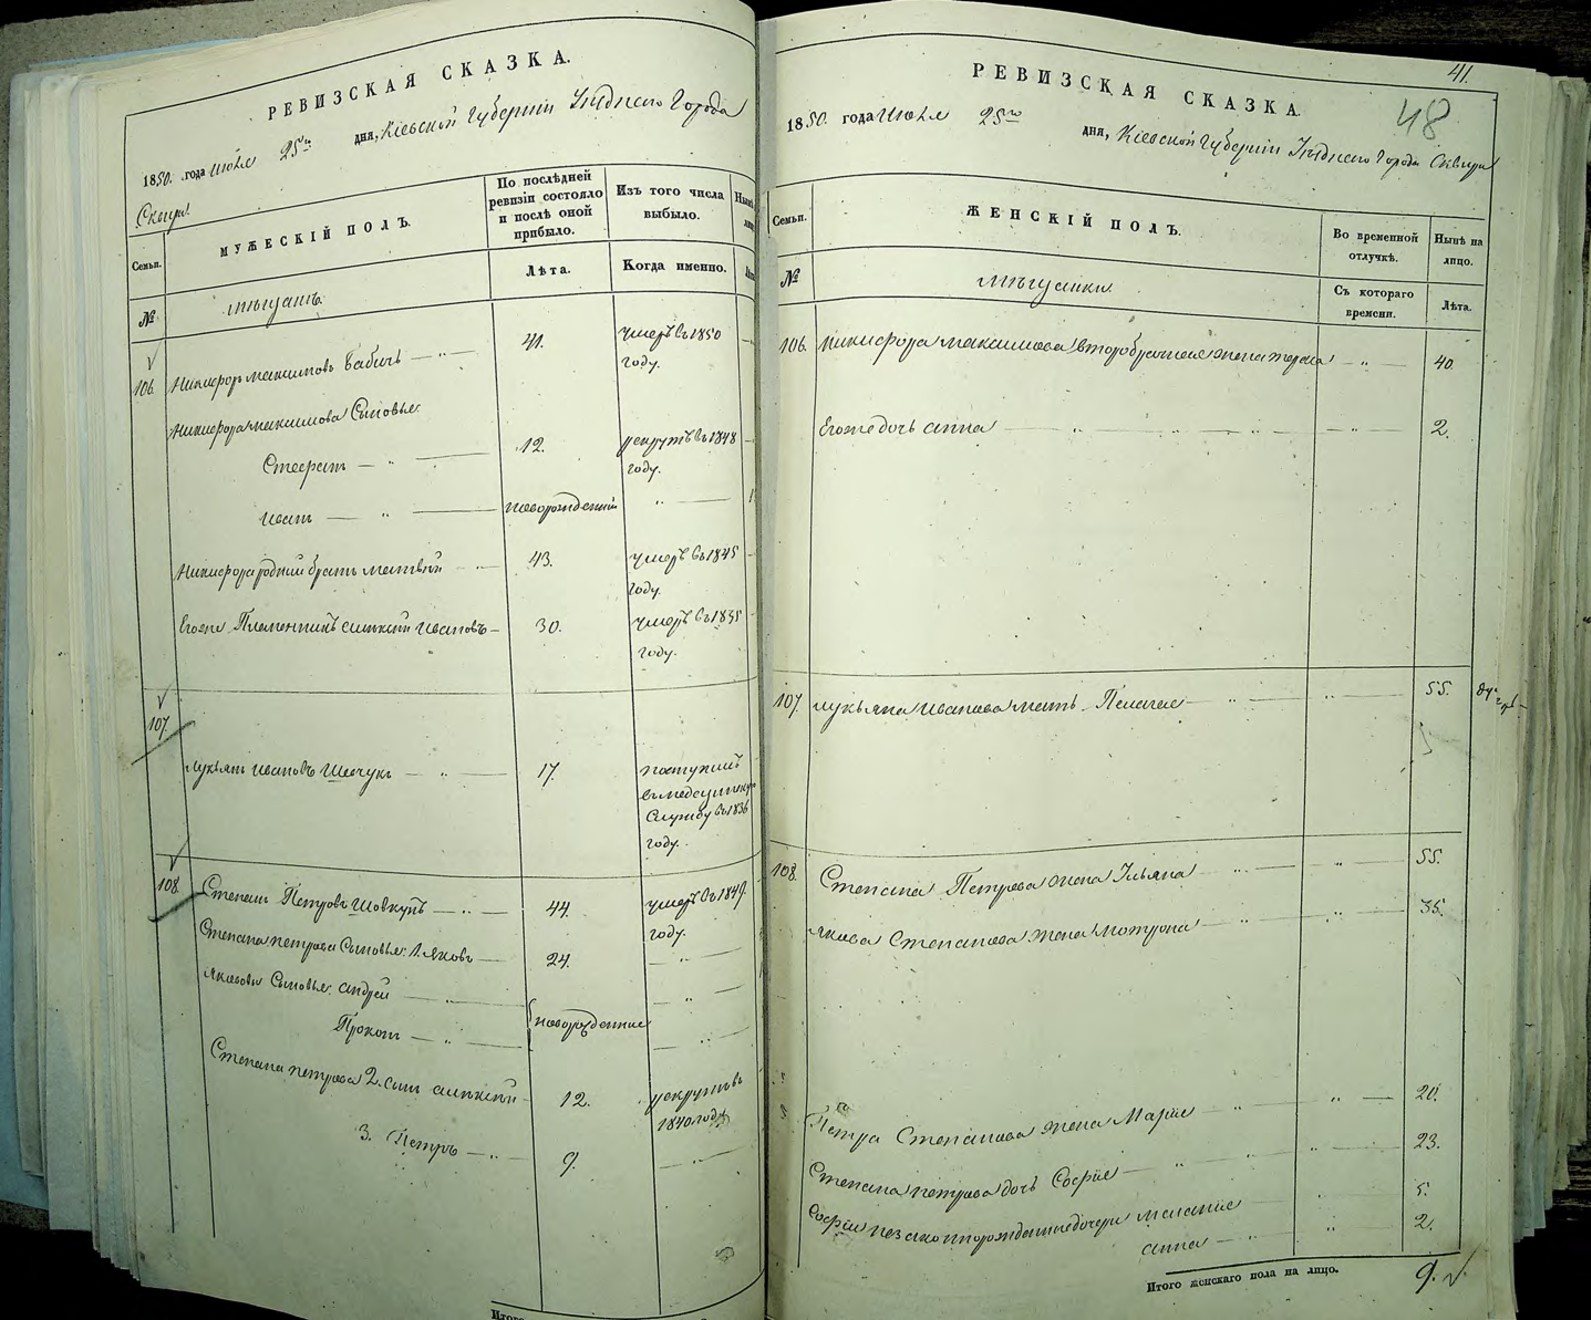 РЕВИЗСКАЯ СКАЗКА.
1850. года Июля 25го дня, Кіевской Губерніи Уѣднего Города
Сквиры.
Семьи.
МУЖЕСКІЙ ПОЛЪ.
По послѣдней
ревизіи состояло
и послѣ оной
прибыло.
Изъ того числа
выбыло.
Лѣта.
Когда именно.
№
мѣщанъ.
106. Никифоръ Максимовъ Бабичъ 41. умеръ въ 1850
году.
Никифора Максимова Сыновье:
12. рекрутъ въ 1848
году.
Иванъ новорожденный
Никифора родний братъ Матвѣй 43. умеръ въ 1845
году.
Егоже Племенникъ Алексѣй Ивановъ 30. умеръ въ 1835
году.
107.
Лукьянъ Ивановъ Шевчукъ 17. поступил
Службу въ 1836
году.
108. Степанъ Петровъ Шовкунъ 44. умеръ въ 1849.
году.
Степана Петрова Сыновье: 1. Яковъ 24.
Якововы Сыновье: Андрей
Прокопъ новорожденние
Степана Петрова 2. сынъ Алексѣй 12. рекрутъ въ
1840 году
3. Петръ 9.
РЕВИЗСКАЯ СКАЗКА.
41.
48
1850. года Июля 25го дня, Кіевской Губерніи Уѣднего Города Сквиры
Семьи.
ЖЕНСКІЙ ПОЛЪ.
Во временной
отлучкѣ.
Нынѣ на
лицо.
№
мѣщанки.
Съ котораго
времени.
Лѣта.
106. Никифора Максимова второбрачная жена 40.
Егоже дочь Анна 2.
107. Лукьяна Иванова мать Пелагея 55.
108. Степана Петрова жена Ульяна 55.
Якова Степанова жена Мотрона 35.
Петра Степанова жена Марія 20.
Степана Петрова дочь Софія 23.
Софіи незаконнорожденние дочери Меланія 5.
Анна 2.
Итого женскаго пола на лицо. 9.